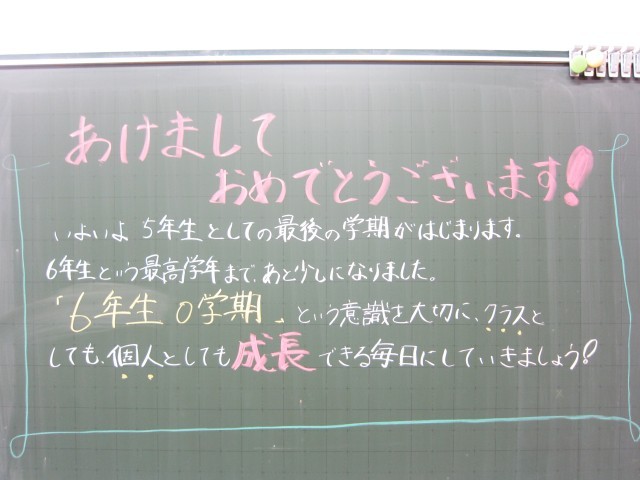 あけまして
おめでとうございます!
いよいよ5年生としての最後の学期がはじまります。
6年生という最高学年まで、あと少しになりました。
「6年生0学期」という意識を大切に、クラスと
しても、個人としても成長できる毎日にしていきましょう!